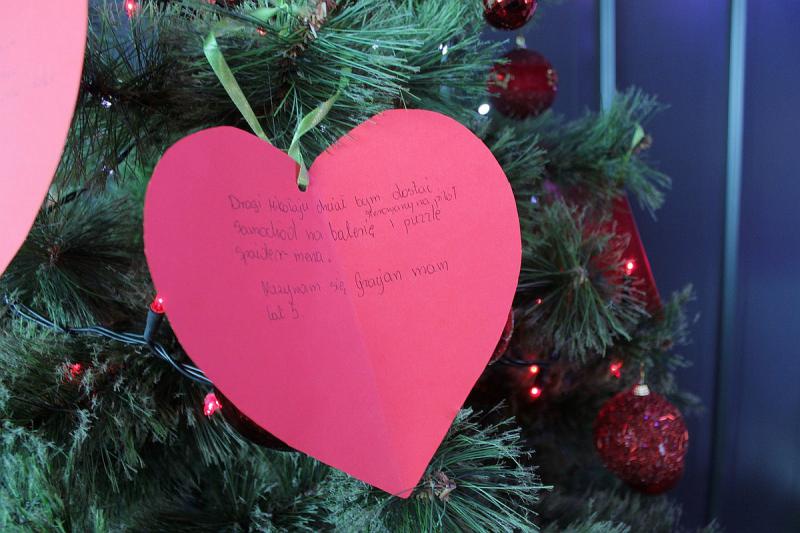 Drogi Mikołaju chciał bym dostać
sterowany na pilot
samochód na baterię i puzzle
spaider mena.
Nazywam się Gracjan mam
lat 5